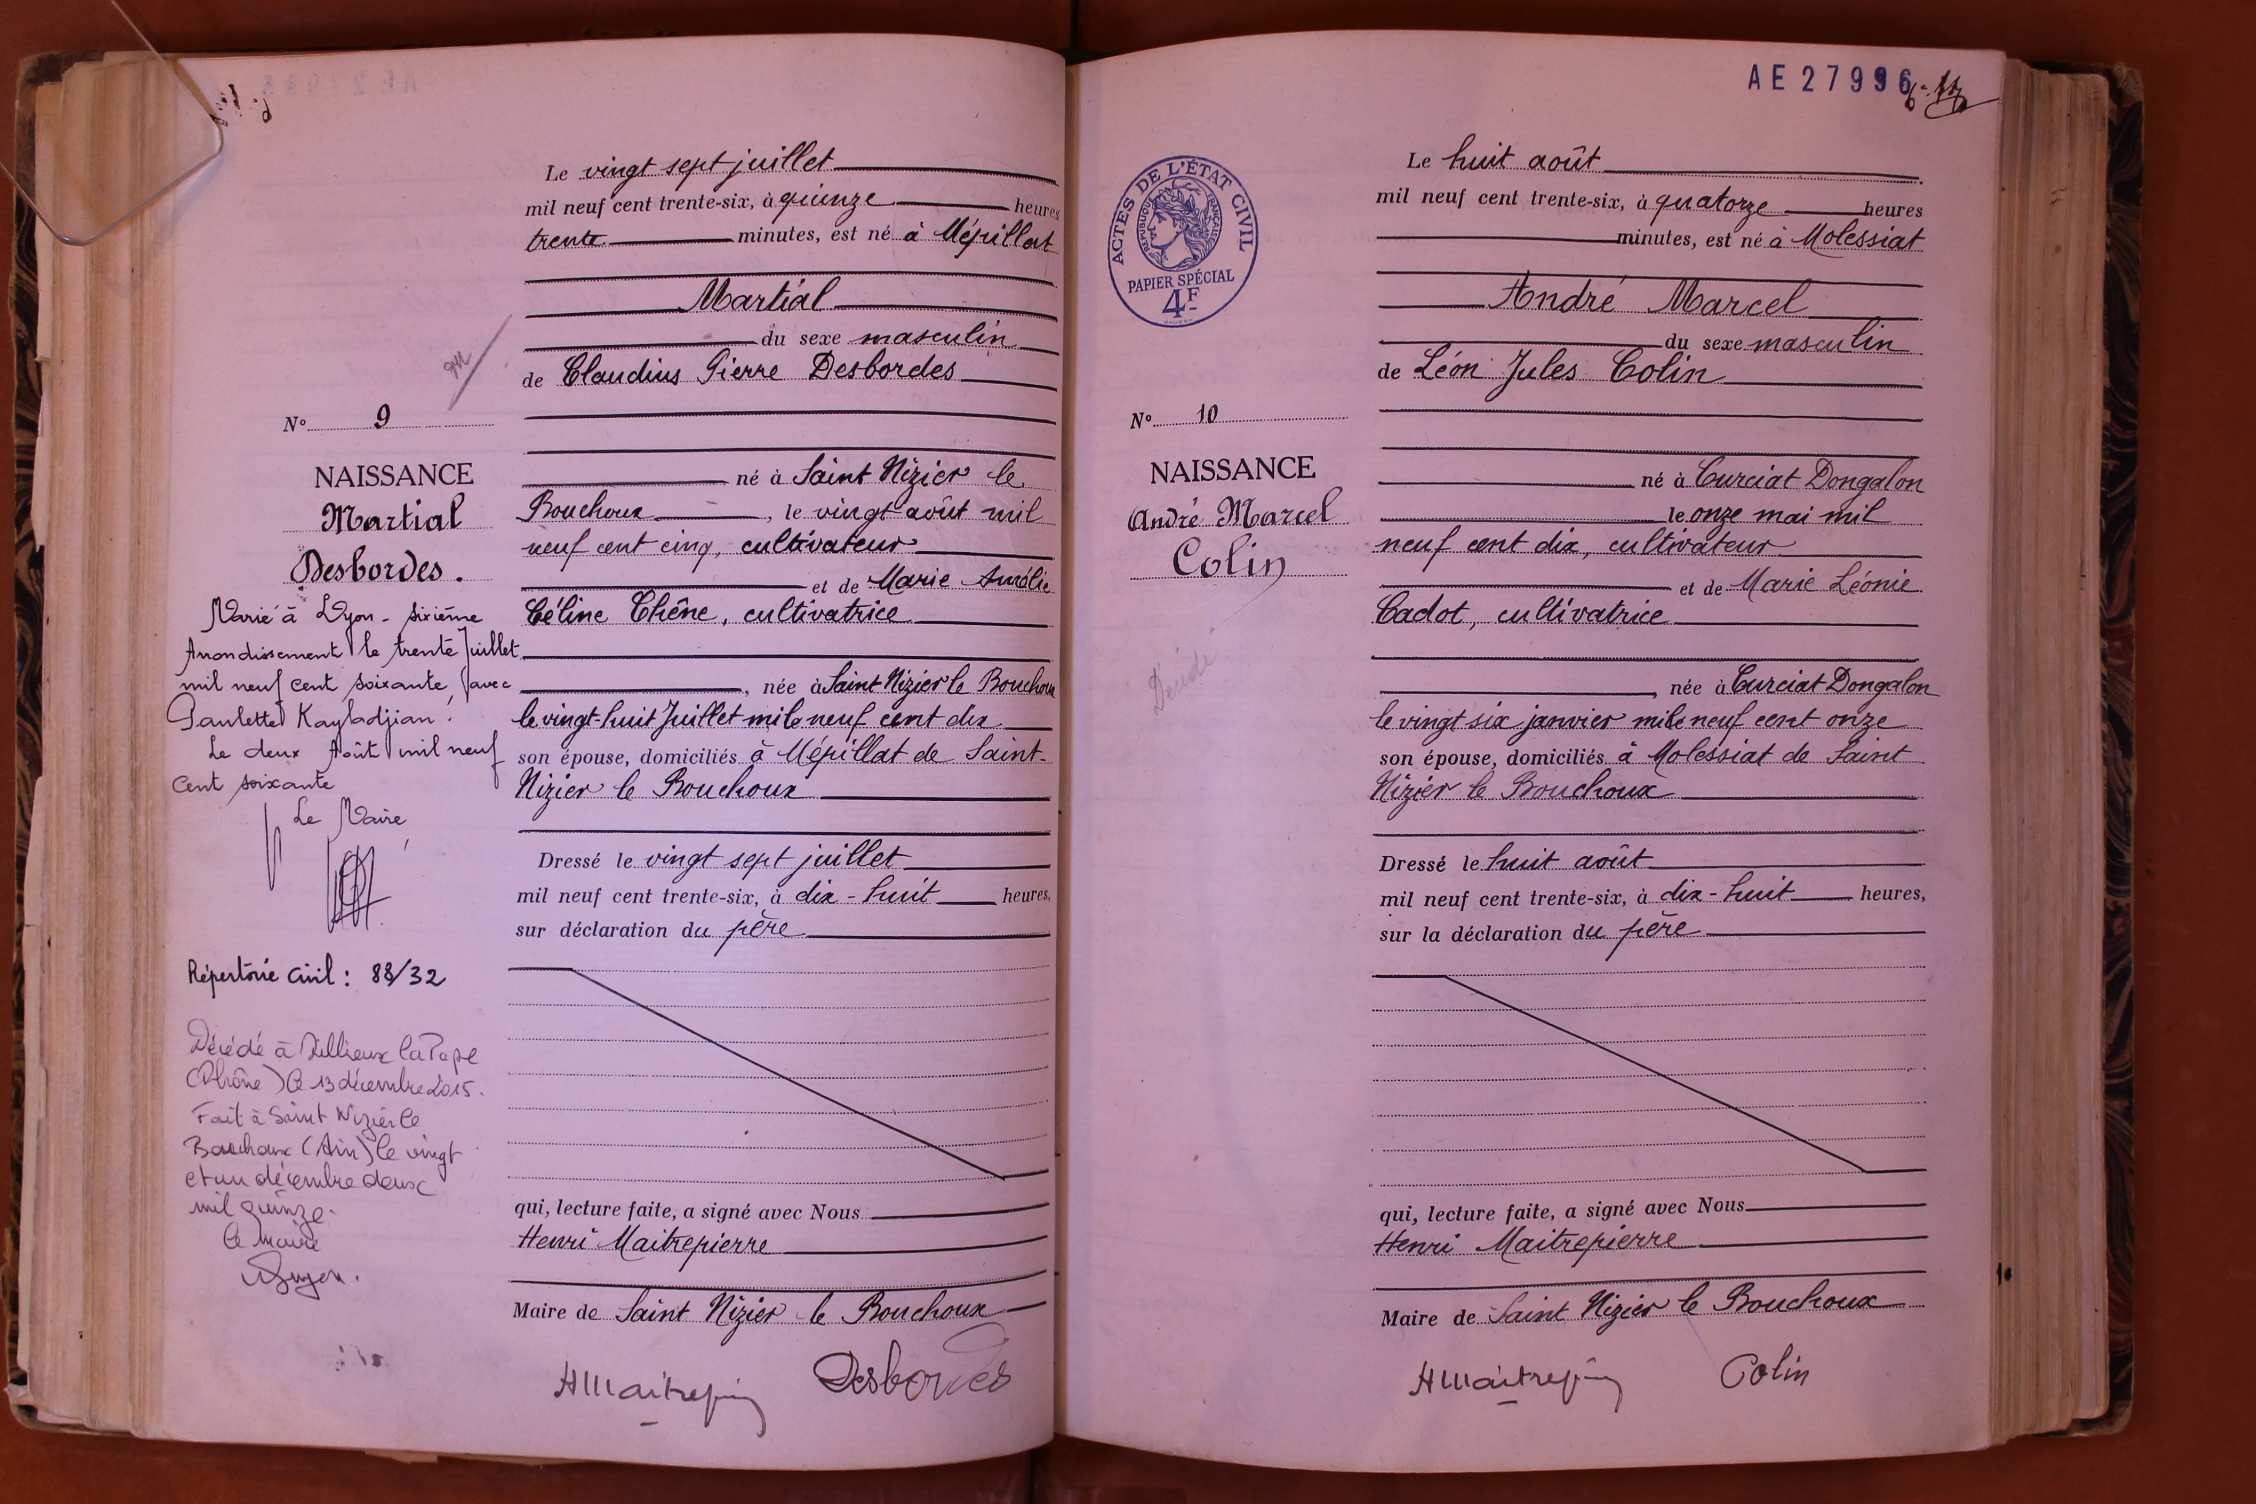 Le vingt sept juillet
mil neuf cent trente-six, à quinze heures
trente minutes, est né à Mépillat
Martial
du sexe masculin
de Claudius Pierre Desbordes
né à Saint Nizier le
Bouchoux, le vingt août mil
neuf cent cinq, cultivateur
et de Marie Aurélie
Céline Chêne, cultivatrice
, née à Saint Nizier le Bouchoux
le vingt-huit Juillet mil neuf cent dix
son épouse, domiciliés à Mépillat de Saint-
Nizier le Bouchoux
Dressé le vingt sept juillet
mil neuf cent trente-six, à dix-huit heures,
sur déclaration du père
qui, lecture faite, a signé avec Nous
Henri Maitrepierre
Maire de Saint Nizier le Bouchoux
HMaitrepierre Desbordes
N° 9
NAISSANCE
Martial
Desbordes.
Marié à Lyon - sixième
Arrondissement le trente Juillet
mil neuf cent soixante, avec
Paulette Kayladjian.
Le deux Août mil neuf
cent soixante
Le Maire,
Répertoire civil : 88/32
Décédé à Rillieux la Pape
(Rhône) le 13 décembre 2015.
Fait à Saint Nizier le
Bouchoux (Ain) le vingt
et un décembre deux
mil quinze.
Le Maire
AE27996
ACTES DE L'ÉTAT CIVIL
RÉPUBLIQUE FRANÇAISE
PAPIER SPÉCIAL
4F
Le huit août
mil neuf cent trente-six, à quatorze heures
minutes, est né à Molessiat
André Marcel
du sexe masculin
de Léon Jules Colin
né à Curciat Dongalon
le onze mai mil
neuf cent dix, cultivateur
et de Marie Léonie
Cadot, cultivatrice
, née à Curciat Dongalon
le vingt six janvier mil neuf cent onze
son épouse, domiciliés à Molessiat de Saint
Nizier le Bouchoux
Dressé le huit août
mil neuf cent trente-six, à dix-huit heures,
sur la déclaration du père
qui, lecture faite, a signé avec Nous
Henri Maitrepierre
Maire de Saint Nizier le Bouchoux
HMaitrepierre Colin
N° 10
NAISSANCE
André Marcel
Colin
Décédé